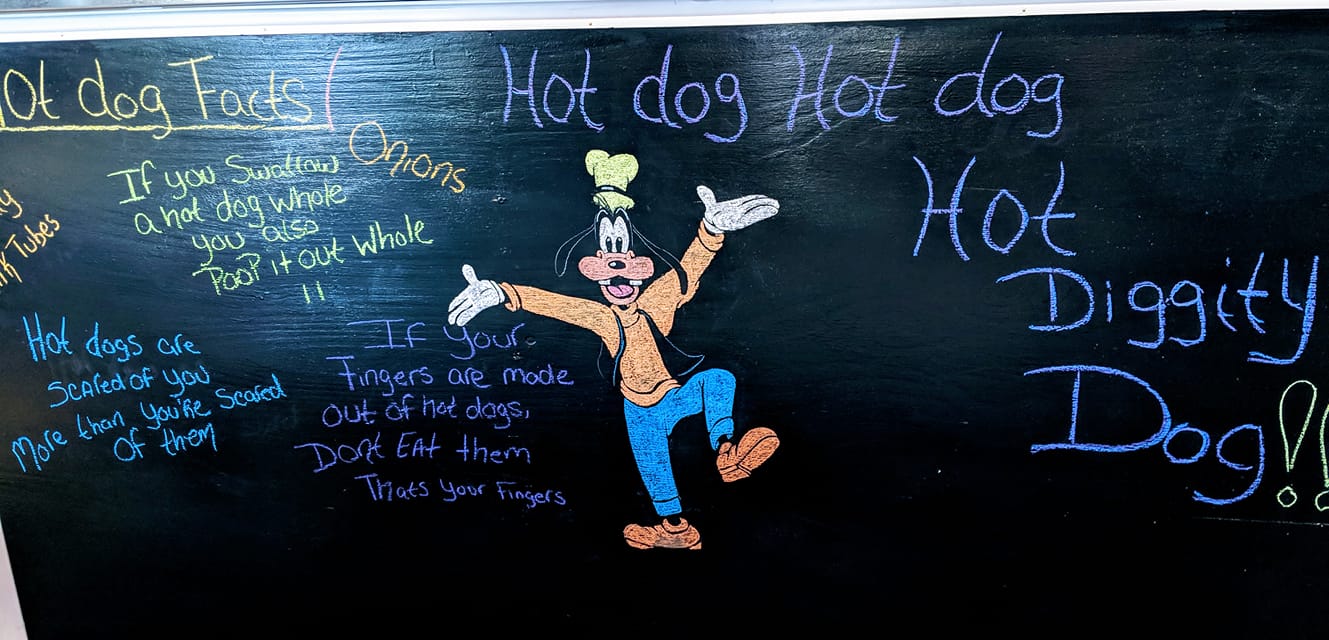 ot dog Facts!
Onions
If you Swallow
a hot dog whole
you also
Poop it out whole
!!
Tubes
Hot dogs are
scared of you
More than you're Scared
of them
If your
Fingers are made
out of hot dogs,
Dont EAt them
Thats your Fingers
Hot dog Hot dog
Hot
Diggity
Dog!!